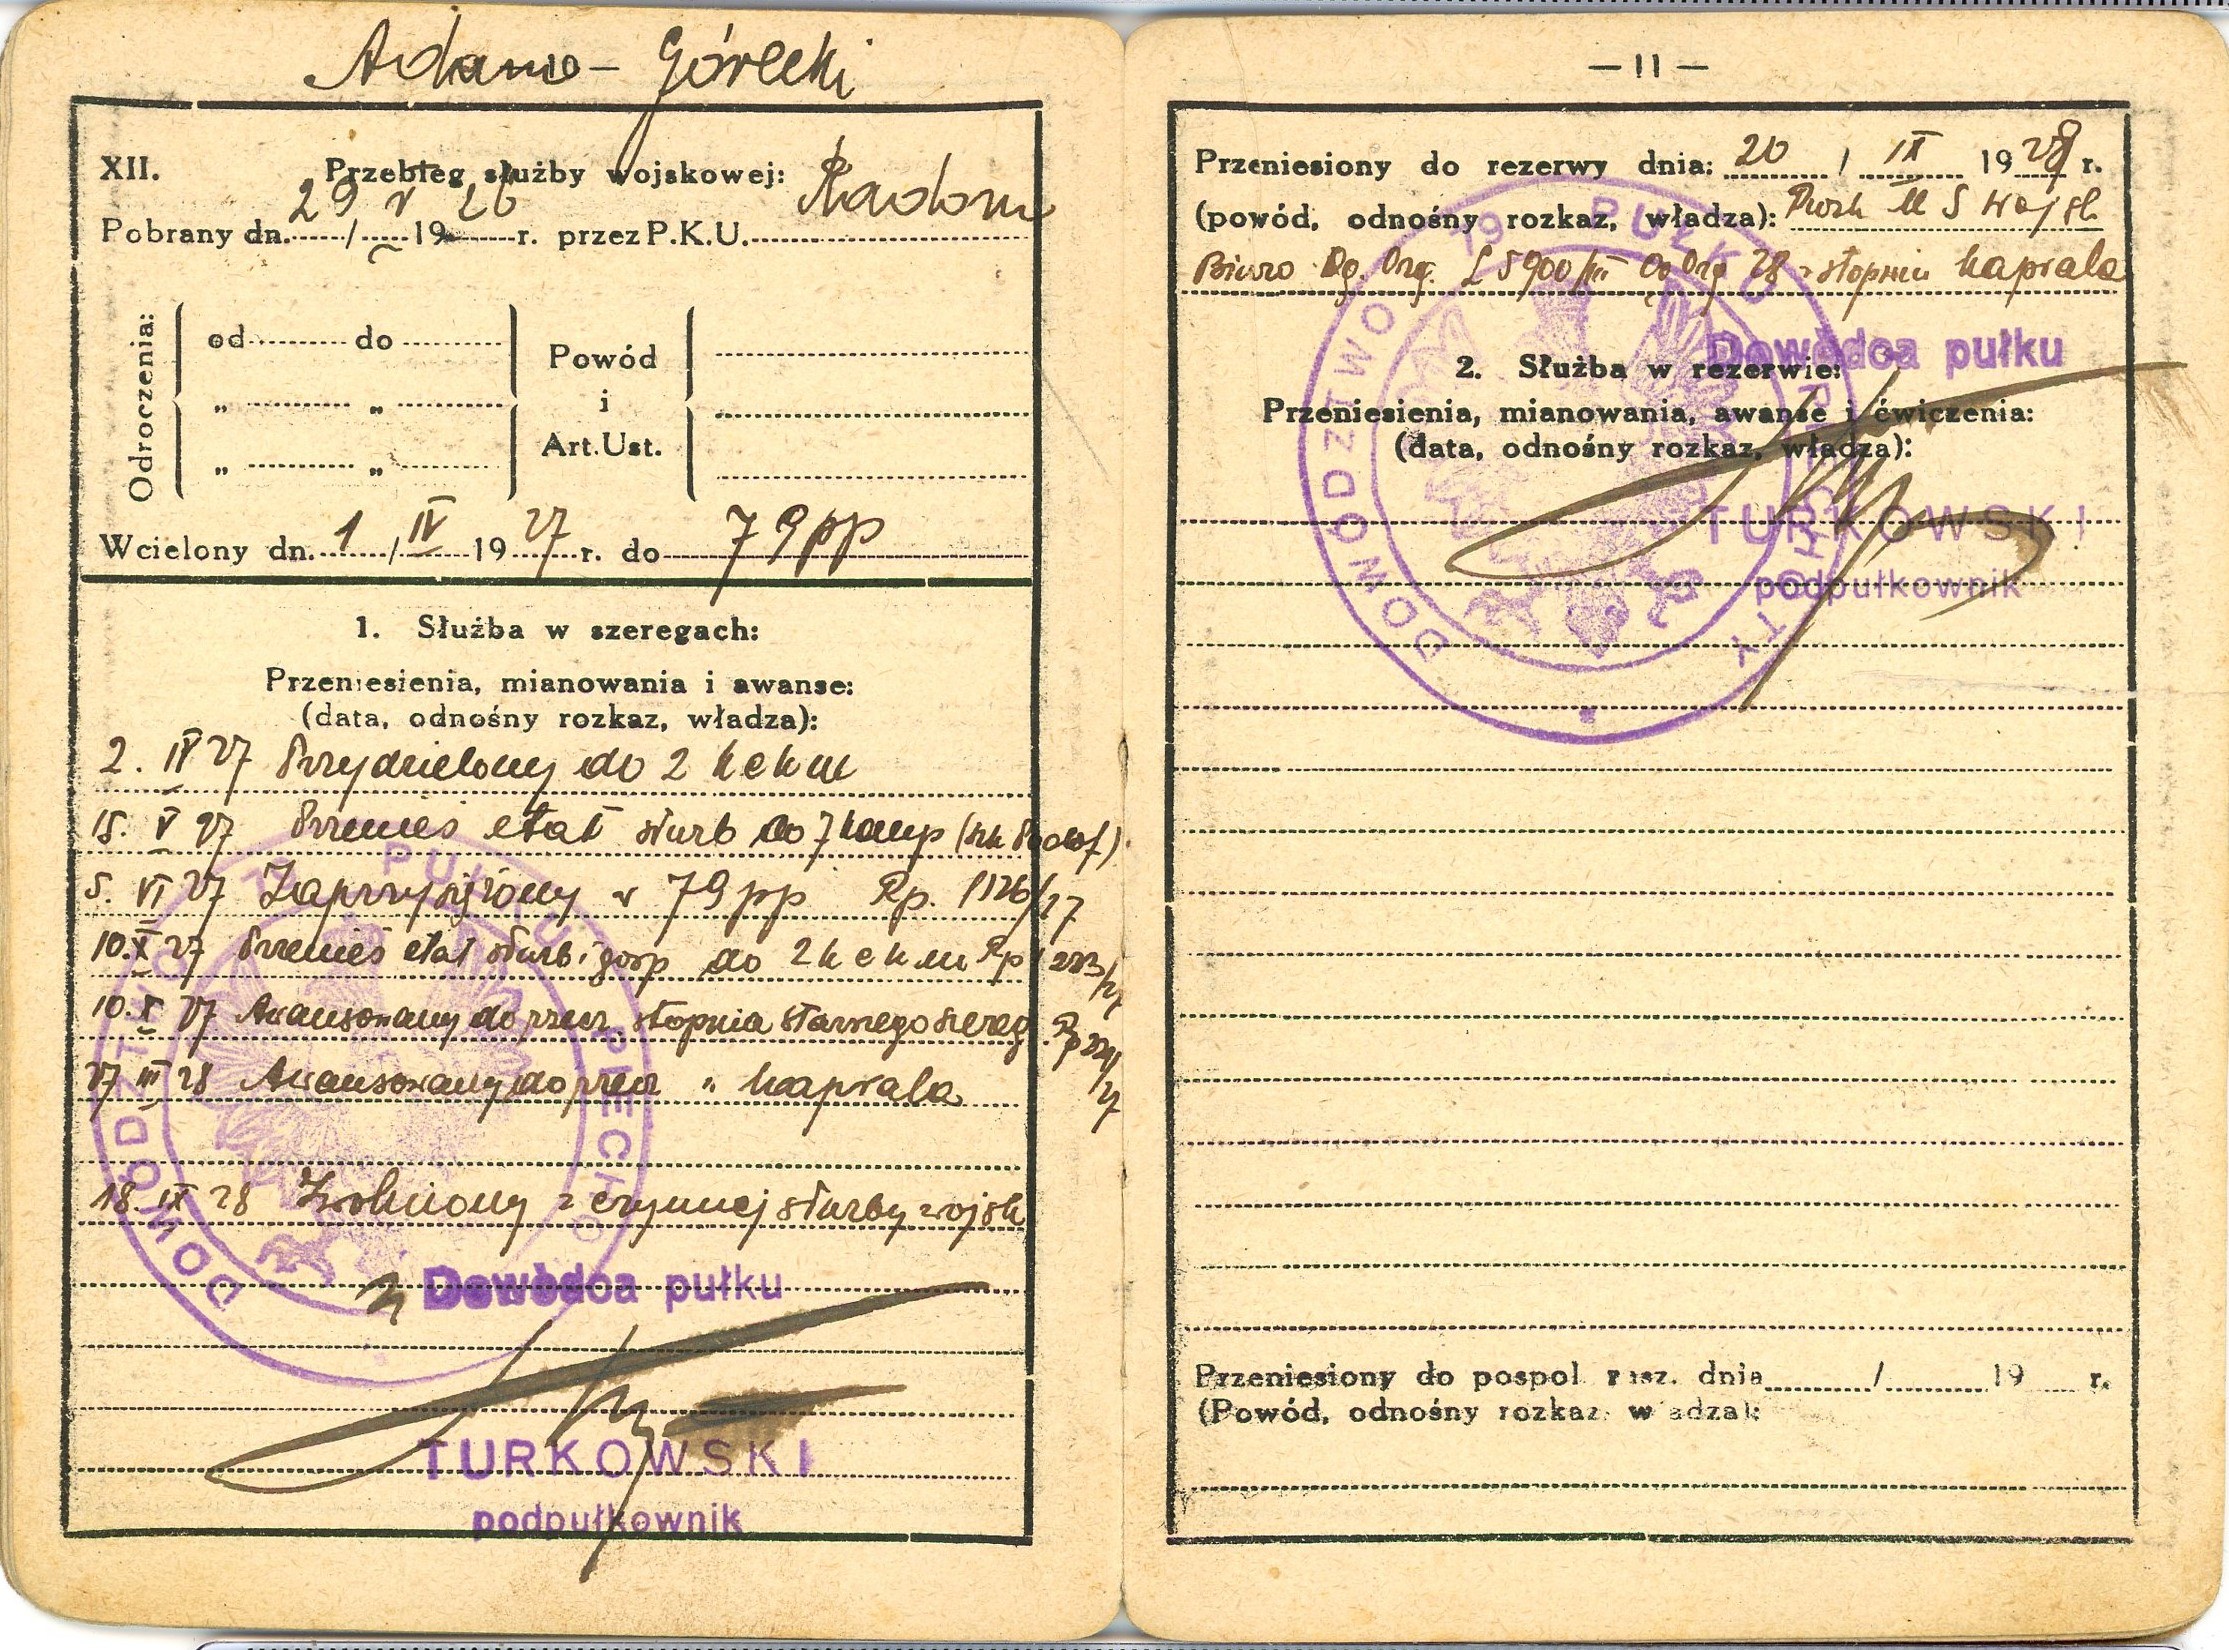 Adam Górecki
XII. Przebieg służby wojskowej:
Pobrany dn. 29 / V 1926 r. przez P.K.U. Radom
Odroczenia:
od do
„ „
„ „
Powód
i
Art. Ust.
Wcielony dn. 1 / IV 1927 r. do 79 pp
1. Służba w szeregach:
Przeniesienia, mianowania i awanse:
(data, odnośny rozkaz, władza):
2. IV 27 Przydzielony do 2 k c k m
15. V 27 Przenieś etat służb do 7 komp
5. VI 27 Zaprzysiężony w 79 pp Rp. 126/27
10. X 27 Przenieś etat służb i gosp do 2 k c k m Rp 223/27
10. X 27 Awansowany do rzecz. stopnia starszego szereg. Rp
27 III 28 Awansowany do rzecz „ kaprala
18. IX 28 Zwolniony z czynnej służby wojsk
DOWÓDZTWO 79 PUŁKU PIECHOTY
Dowódca pułku
TURKOWSKI
podpułkownik
— 11 —
Przeniesiony do rezerwy dnia: 20 / IX 1928 r.
(powód, odnośny rozkaz, władza): Rozk M S Wojsk
Biuro Og. Org. L 5900/III Og Org 28 w stopniu kaprala
DOWÓDZTWO 79 PUŁKU PIECHOTY
Dowódca pułku
2. Służba w rezerwie:
Przeniesienia, mianowania, awanse i ćwiczenia:
(data, odnośny rozkaz, władza):
TURKOWSKI
podpułkownik
Przeniesiony do pospol rusz. dnia / 19 r.
(Powód, odnośny rozkaz, władza):